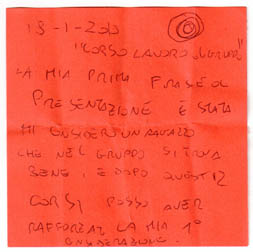 "CORSO LAVORO
LA MIA PRIMA FRASE DI
PRESENTAZIONE È STATA
MI CONSIDERO UN RAGAZZO
CHE NEL GRUPPO SI TROVA
BENE, E DOPO QUESTI 2
CORSI POSSO AVER
RAFFORZAT LA MIA 1°
CONSIDERAZIONE